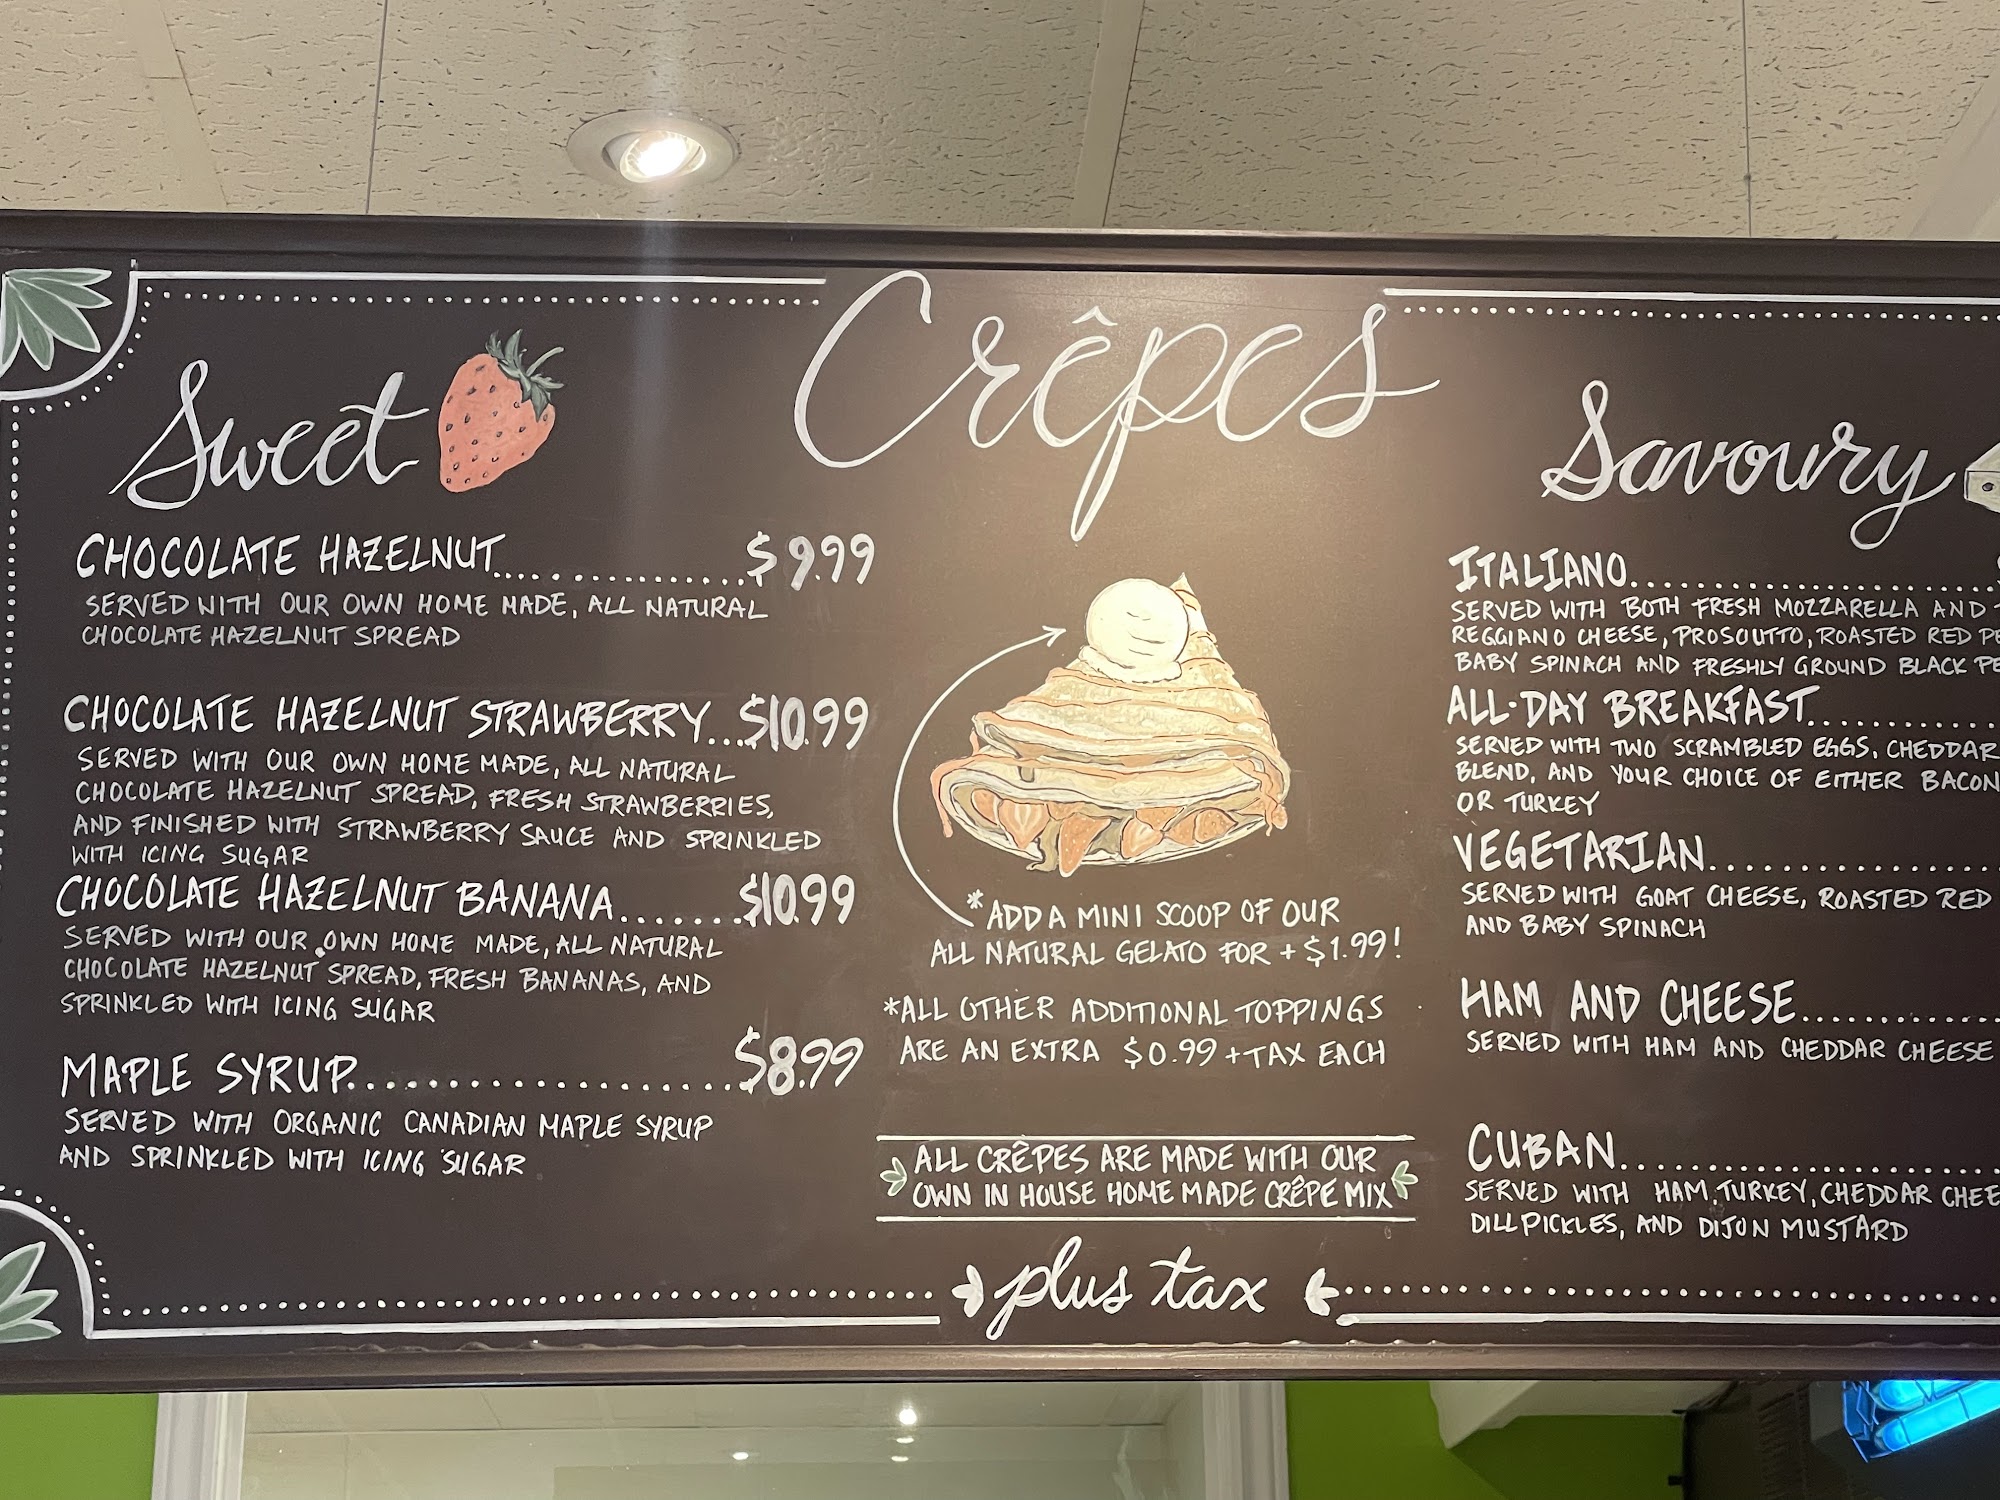 Crêpes
Sweet
CHOCOLATE HAZELNUT..................$9.99
SERVED WITH OUR OWN HOME MADE, ALL NATURAL
CHOCOLATE HAZELNUT SPREAD
CHOCOLATE HAZELNUT STRAWBERRY...$10.99
SERVED WITH OUR OWN HOME MADE, ALL NATURAL
CHOCOLATE HAZELNUT SPREAD, FRESH STRAWBERRIES,
AND FINISHED WITH STRAWBERRY SAUCE AND SPRINKLED
WITH ICING SUGAR
CHOCOLATE HAZELNUT BANANA.......$10.99
SERVED WITH OUR OWN HOME MADE, ALL NATURAL
CHOCOLATE HAZELNUT SPREAD, FRESH BANANAS, AND
SPRINKLED WITH ICING SUGAR
MAPLE SYRUP.......................$8.99
SERVED WITH ORGANIC CANADIAN MAPLE SYRUP
AND SPRINKLED WITH ICING SUGAR
*ADD A MINI SCOOP OF OUR
ALL NATURAL GELATO FOR + $1.99!
*ALL OTHER ADDITIONAL TOPPINGS
ARE AN EXTRA $0.99 + TAX EACH
ALL CRÊPES ARE MADE WITH OUR
OWN IN HOUSE HOME MADE CRÊPE MIX
plus tax
Savoury
ITALIANO....................
SERVED WITH BOTH FRESH MOZZARELLA AND
REGGIANO CHEESE, PROSCIUTTO, ROASTED RED
BABY SPINACH AND FRESHLY GROUND BLACK
ALL-DAY BREAKFAST............
SERVED WITH TWO SCRAMBLED EGGS, CHEDDAR
BLEND, AND YOUR CHOICE OF EITHER BACON
OR TURKEY
VEGETARIAN.................
SERVED WITH GOAT CHEESE, ROASTED RED
AND BABY SPINACH
HAM AND CHEESE............
SERVED WITH HAM AND CHEDDAR CHEESE
CUBAN.......................
SERVED WITH HAM, TURKEY, CHEDDAR
DILL PICKLES, AND DIJON MUSTARD